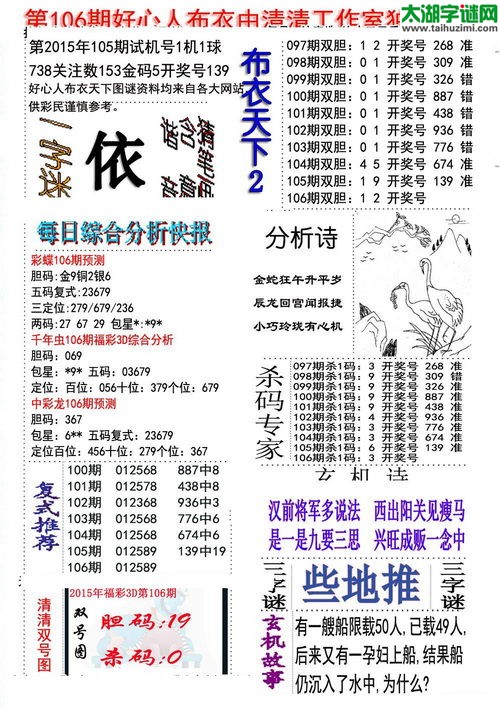 太湖字谜网
www.taihuzimi.com
第106期好心人布衣由清清工作室
第2015年105期试机号1机1球
738关注数153金码5开奖号139
好心人布衣天下图谜资料均来自各大网站
供彩民谨慎参考。
一字迷
依
布衣天下2
097期双胆：1 2 开奖号 268 准
098期双胆：0 1 开奖号 309 准
099期双胆：0 1 开奖号 326 错
100期双胆：0 1 开奖号 887 错
101期双胆：0 1 开奖号 438 错
102期双胆：0 1 开奖号 936 错
103期双胆：0 1 开奖号 776 错
104期双胆：4 5 开奖号 674 准
105期双胆：1 9 开奖号 139 准
106期双胆：1 2 开奖号
每日综合分析快报
彩蝶106期预测
胆码：金9铜2银6
五码复式:23679
三定位:279/679/236
两码：27 67 29 包星*:*9*
千年虫106期福彩3D综合分析
胆码：069
包星：*9* 五码：03679
定位：百位：056十位：379个位：679
中彩龙106期预测
胆码：367
包星：6** 五码复式：23679
定位百位：456十位：279个位：367
分析诗
金蛇狂午升平岁
辰龙回宫闻报捷
小巧玲珑有心机
杀码专家
097期杀1码：3 开奖号 268 准
098期杀1码：9 开奖号 309 错
099期杀1码：9 开奖号 326 准
100期杀1码：9 开奖号 887 准
101期杀1码：9 开奖号 438 准
102期杀1码：4 开奖号 936 准
103期杀1码：3 开奖号 776 准
104期杀1码：3 开奖号 674 准
105期杀1码：6 开奖号 139 准
106期杀1码：3 开奖号
玄机诗
汉前将军多说法 西出阳关见瘦马
是一是九要三思 兴旺成贩一念中
复式推荐
100期 012568 887中8
101期 012578 438中8
102期 012368 936中3
103期 012568 776中6
104期 012568 674中6
105期 012589 139中19
106期 012589
清清双号图
2015年福彩3D第106期
双号图
胆码:19
杀码:0
三字谜
些地推
三字谜
玄机故事
有一艘船限载50人,已载49人,
后来又有一孕妇上船,结果船
仍沉入了水中,为什么?